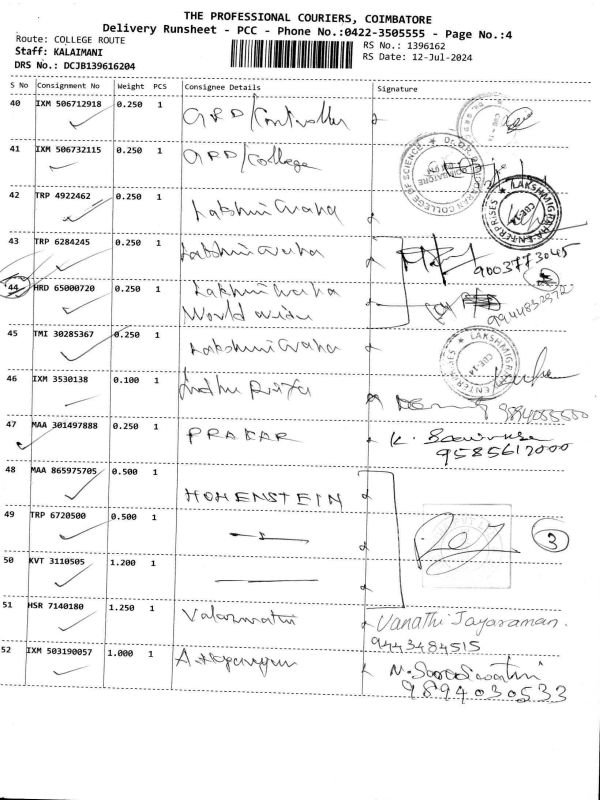 THE PROFESSIONAL COURIERS, COIMBATORE
Delivery Runsheet - PCC - Phone No.:0422-3505555 - Page No.:4
Route: COLLEGE ROUTE
RS No.: 1396162
Staff: KALAIMANI
RS Date: 12-Jul-2024
DRS No.: DCJB139616204
S No Consignment No Weight PCS Consignee Details Signature
40 IXM 506712918 0.250 1 GRD/Controller
41 IXM 506732115 0.250 1 GRD/College
42 TRP 4922462 0.250 1
LAKSHMIGRAHA ENTERPRISES CBE-14
43 TRP 6284245 0.250 1
9003773045
44 HRD 65000720 0.250 1
World wide
45 TMI 30285367 0.250 1
LAKSHMIGRAHA ENTERPRISES CBE-14
46 IXM 3530138 0.100 1
47 MAA 301497888 0.250 1 PRAKAR K.
9585617000
48 MAA 865975705 0.500 1 HOHENSTEIN
49 TRP 6720500 0.500 1 3
50 KVT 3110505 1.200 1
51 HSR 7140180 1.250 1 Vanathi Jayaraman.
9443484515
52 IXM 503190057 1.000 1
9894030533